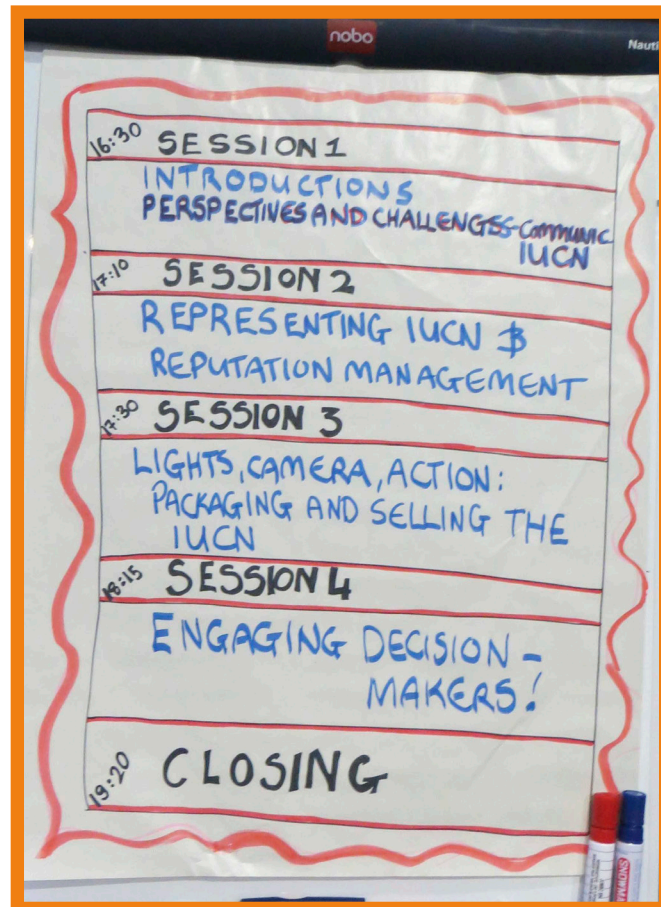 nobo
Nauti
16:30 SESSION 1
INTRODUCTIONS
PERSPECTIVES AND CHALLENGES-Communic
IUCN
17:10 SESSION 2
REPRESENTING IUCN &
REPUTATION MANAGEMENT
17:30 SESSION 3
LIGHTS, CAMERA, ACTION:
PACKAGING AND SELLING THE
IUCN
18:15 SESSION 4
ENGAGING DECISION-
MAKERS!
19:20 CLOSING